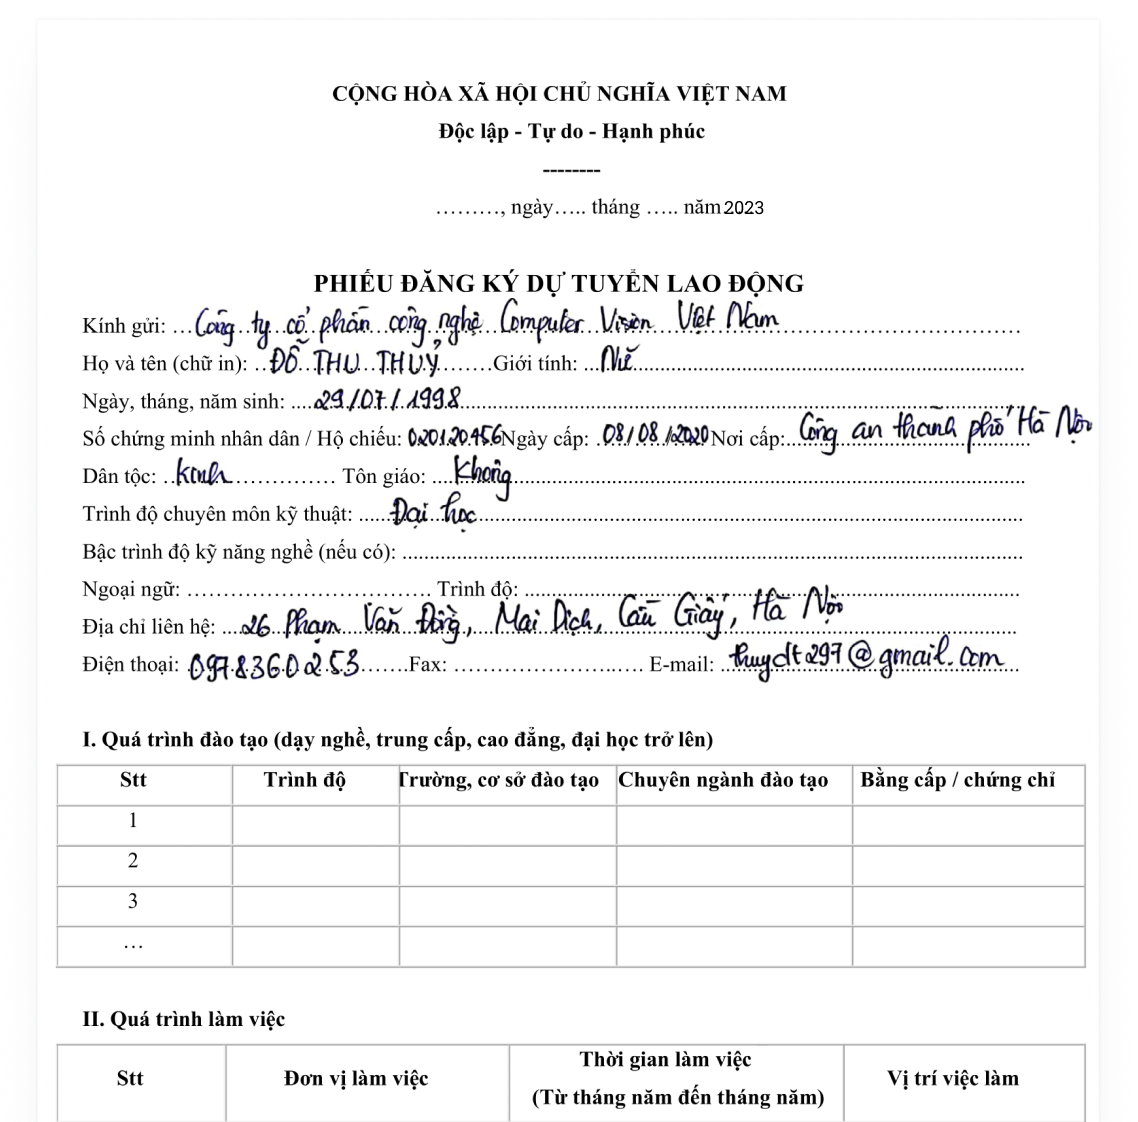 CỘNG HÒA XÃ HỘI CHỦ NGHĨA VIỆT NAM
Độc lập - Tự do - Hạnh phúc
--------
………, ngày….. tháng ….. năm 2023
PHIẾU ĐĂNG KÝ DỰ TUYỂN LAO ĐỘNG
Kính gửi: Công ty cổ phần công nghệ Computer Vision Việt Nam
Họ và tên (chữ in): ĐỖ THU THUỶ Giới tính: Nữ
Ngày, tháng, năm sinh: 29/07/1998
Số chứng minh nhân dân / Hộ chiếu: 020120456 Ngày cấp: 08/08/2020 Nơi cấp: Công an thành phố Hà Nội
Dân tộc: Kinh Tôn giáo: Không
Trình độ chuyên môn kỹ thuật: Đại học
Bậc trình độ kỹ năng nghề (nếu có):
Ngoại ngữ: Trình độ:
Địa chỉ liên hệ: 26 Phạm Văn Đồng, Mai Dịch, Cầu Giấy, Hà Nội
Điện thoại: 0978360253 Fax: E-mail: thuydt297@gmail.com
I. Quá trình đào tạo (dạy nghề, trung cấp, cao đẳng, đại học trở lên)
Stt Trình độ Trường, cơ sở đào tạo Chuyên ngành đào tạo Bằng cấp / chứng chỉ
1
2
3
…
II. Quá trình làm việc
Stt Đơn vị làm việc Thời gian làm việc (Từ tháng năm đến tháng năm) Vị trí việc làm